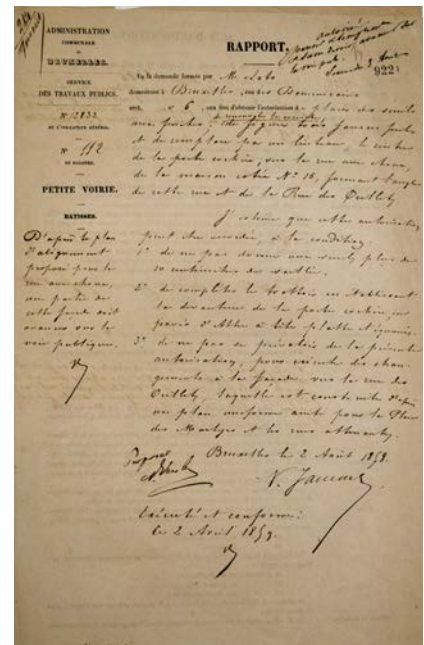 ADMINISTRATION
COMMUNALE
DE
BRUXELLES.
SERVICE
DES TRAVAUX PUBLICS.
N° 13832
DE L'INDICATEUR GÉNÉRAL.
N° 112
DU DOSSIER.
PETITE VOIRIE.
BATISSES.
D'après le plan
d'alignement
proposé pour la
rue aux choux,
une partie de
cette façade doit
avancer sur la
voie publique.
RAPPORT.
9221
Vu la demande formée par M
demeurant à Bruxelles, Dominicains
sect. n° 6, aux fins d'obtenir l'autorisation de placer des seuils
aux
et de remplacer par un linteau, le cintre
de la porte cochère, vers la rue aux choux,
de la maison cotée N° 16, formant l'angle
de cette rue et de la Rue des Œillets
J'estime que cette autorisation
peut être accordée, à la condition:
1° de ne pas donner aux seuils plus de
10 centimètres de saillie.
2° de compléter le trottoir en établissant
la devanture de la porte cochère, en
pavés d'Attre à tête plate
3° de ne pas se prévaloir de la présente
autorisation, pour exécuter des chan-
gements à la façade vers la rue des
Œillets, laquelle est construite d'après
un plan uniforme pour la Place
des Martyrs et les rues attenantes.
Bruxelles le 2 Août 1859.
Proposé
V. Jamaer
Exécuté et conforme:
le 2 Août 1859.